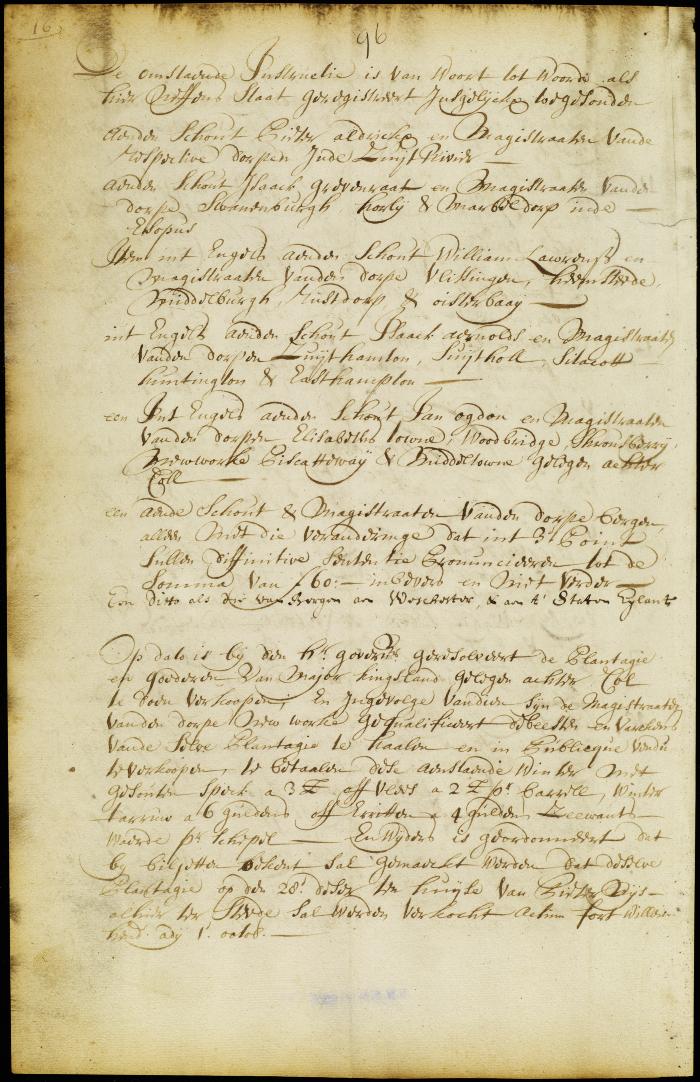 16
96
De omstaende Instructie is van Woort tot Woorde als
hier Neffens Staat geregistreert Insgelijckx toegesonden
aenden Schout Pieter aldrickx en Magistraaten vande
respective dorpen Inde Zuijt Rivier —
aenden Schout Isaack grevenraat en Magistraaten vande
dorpe Swanenburgh, horly & Marbeldorp inde —
Esopus
Item int Engels aenden Schout William Lawrens en
Magistraaten vanden dorpe Vlissingen, heemstede
Middelburgh, Rustdorp & oisterbaay —
int Engels aenden Schout Isaack aernolds en Magistraaten
vanden dorpen Zuijthamton, Suijtholl, Sitacott
huntington & Easthampton —
een Int Engels aenden Schout Jan ogdon en Magistraaten
vanden dorpen Elisabeths towne, Woodbridge, Shrousberry,
Newworke Piscatteway & Middeltowne gelegen achter
Coll —
een aende Schout & Magistraaten vanden dorpe bergen
alleen Met die veranderinge dat int 3e Point
Sullen diffinitive Sententie Pronuncieeren tot de
Somma van f 60:— in bevers en Niet verder —
Een dito als die van Bergen aen Weschester, & aen 't Staten Eylant
Op dato is bij den hr. goverr. geresolveert de Plantagie
en goederen van Major kingsland gelegen achter Col
te doen verkoopen, En Ingevolge vandien sijn de Magistraaten
vanden dorpe New worke gequalificeert de beesten en Varckens
vande Selve Plantagie te haalen en in Publicque vendu
te verkoopen, te betaalen dese aenstaende Winter Met
gesouten Speck a 3 £ off vlees a 2 £ pr. barrell, Winter
tarruw a 6 guldens off Erritten a 4 gulden Zeewants
waerde pr. schepel — En Wijders is geordonneert dat
by biljetten bekent Sal gemaeckt Werden dat deselve
Plantagie op den 28. deser ten huijse van Pieter Nijs
alhier ter Stede Sal werden verkocht Actum fort Willem
hend. ady 1. octob. —